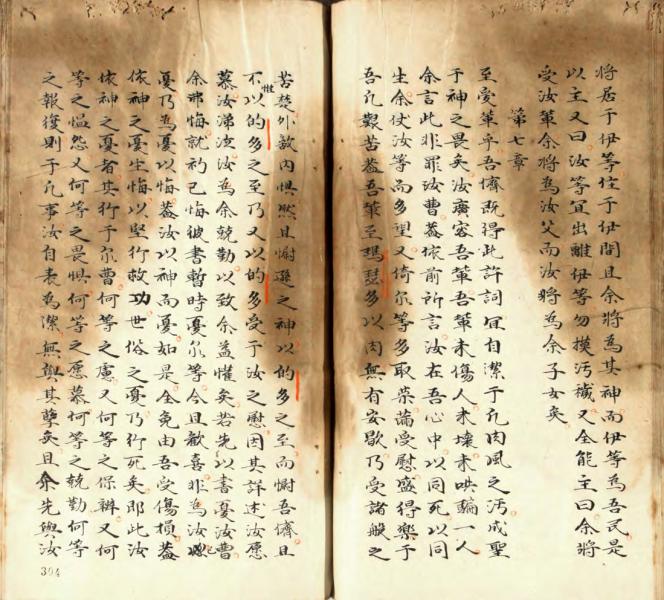 將居于伊等恮于伊間且余將為其神而伊等為吾民是
以主又曰汝等宜出離伊等勿摸汚穢又全能主曰余將
受汝輩余將為汝父而汝將為余子女矣
第七章
至愛輩乎吾儕既得此許詞宜自潔于凢肉風之汚成聖
于神之畏矣汝廣容吾輩吾輩未傷人未壞未哄騙一人
余言此非罪汝曹蓋依前所言汝在吾心中以同死以同
生余仗汝等而多望又倚尔等多取榮蒲受慰盛得樂于
吾凢艱苦蓋吾輩至瑪瑟多以肉無有安歇乃受諸般之
苦楚外敵內惧然且慰遜之神以的多之至而慰吾儕且
不惟以的多之至乃又以的多受于汝之慰因其詳述汝愿
慕汝涕泣汝為余兢勤以致余益懽矣若先以書憂汝曹
余弗悔就礿已悔彼書暫時憂尔等今且歡喜非為汝
憂乃為憂以悔蓋汝以神而憂如是全免由吾受傷損蓋
依神之憂生悔以堅行救功世俗之憂乃行死矣即此汝
依神之憂者其行于尔曹何等之慮又何等之保辦又何
等之愠怨又何等之畏惧何等之愿慕何等之兢勤何等
之報復則于凢事汝自表為潔無與其孽矣且余先與汝
304